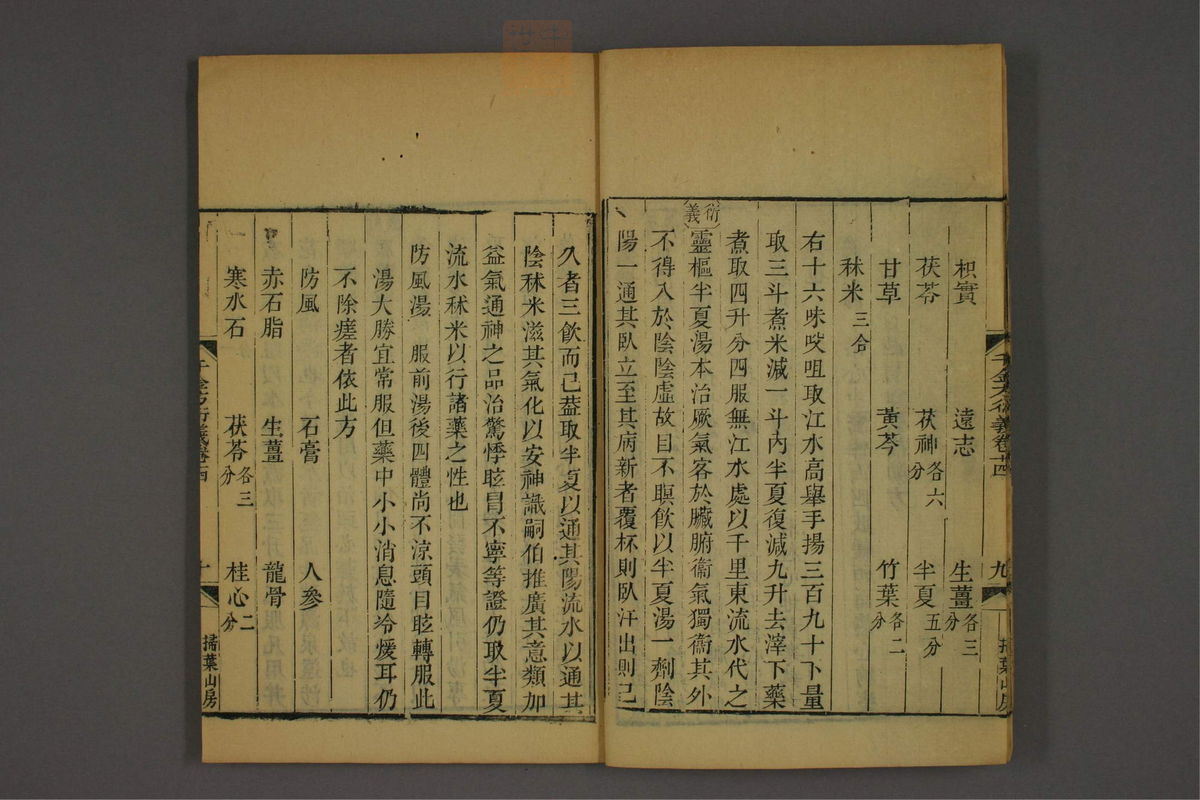 千金方衍義卷十四
九
掃葉山房
枳實 遠志 生薑各三分
茯苓 茯神各六分 半夏五分
甘草 黃芩 竹葉各二分
秫米三合
右十六味㕮咀取江水高舉手揚三百九十下量
取三斗煮米減一斗內半夏復減九升去滓下藥
煮取四升分四服無江水處以千里東流水代之
衍義
靈樞半夏湯本治厥氣客於臟腑衞氣獨衞其外
不得入於陰陰虛故目不瞑飲以半夏湯一劑陰
陽一通其臥立至其病新者覆杯則臥汗出則已
久者三飲而已葢取半夏以通其陽流水以通其
陰秫米滋其氣化以安神識嗣伯推廣其意類加
益氣通神之品治驚悸眩冒不寧等證仍取半夏
流水秫米以行諸藥之性也
防風湯 服前湯後四體尚不涼頭目眩轉服此
湯大勝宜常服但藥中小小消息隨冷煖耳仍
不除瘥者依此方
防風 石膏 人參
赤石脂 生薑 龍骨
寒水石 茯苓各三分 桂心二分
千金方衍義卷十四
十
掃葉山房